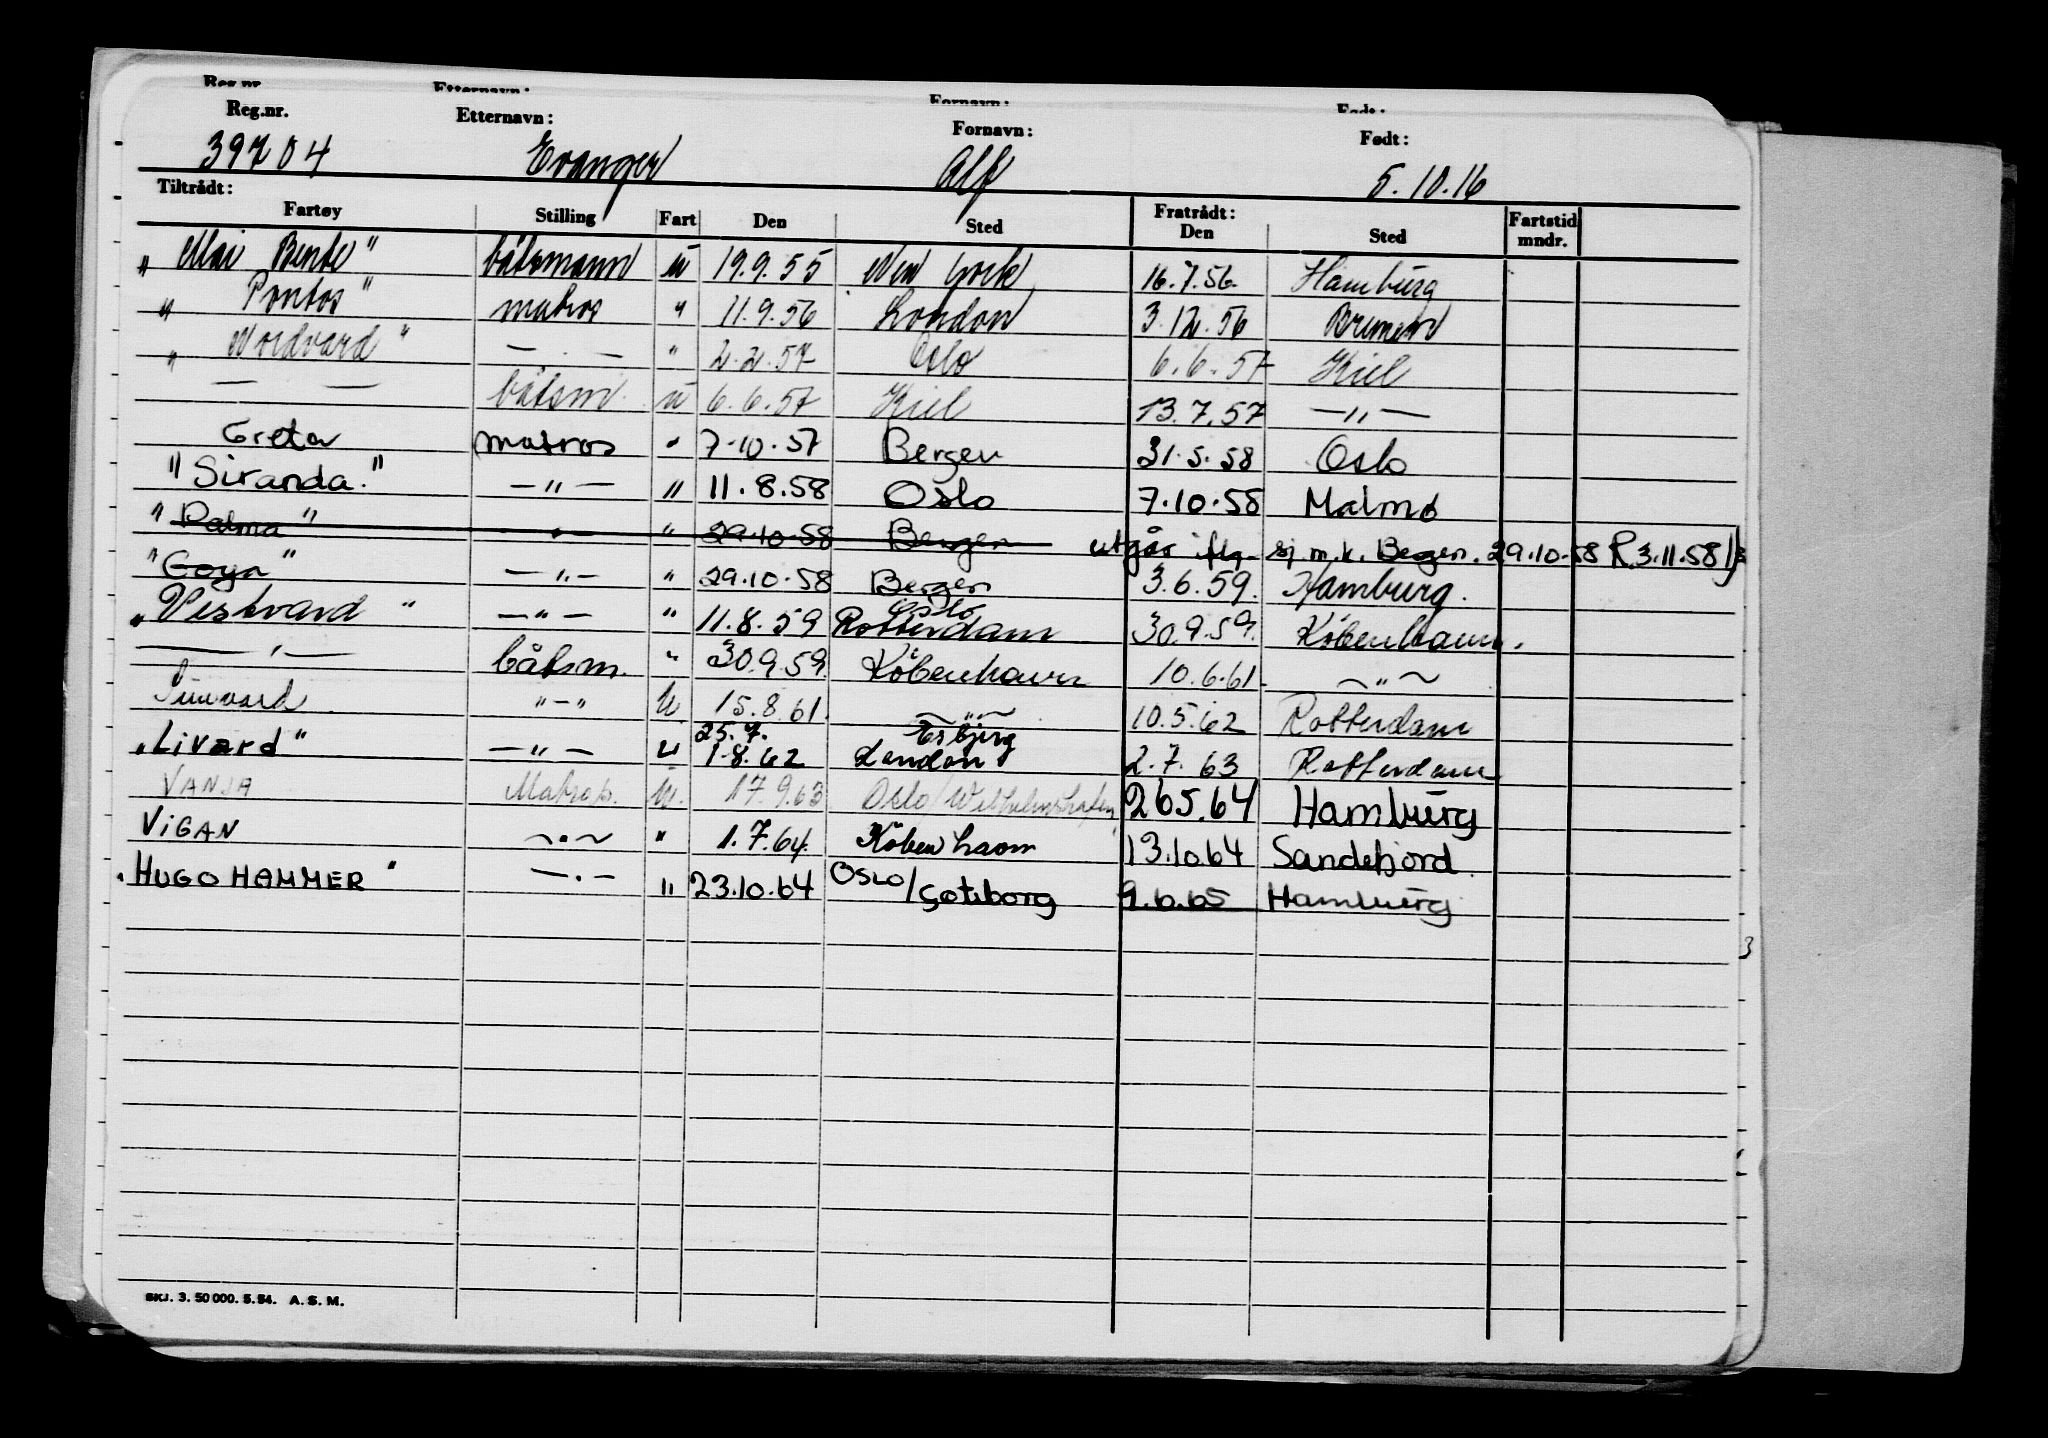 Reg.nr. Etternavn: Fornavn: Født:
Reg.nr. Etternavn: Fornavn: Født:
39704 Evanger Alf 5.10.16
Tiltrådt: Fratrådt:
Fartøy Stilling Fart Den Sted Den Sted Fartstid mndr.
"Mai Bente" båtsmann u 19.9.55 New York 16.7.56 Hamburg
" Pontos" matros " 11.9.56 London 3.12.56 Bremen
" Nordvard" — . — " 2.2.57 Oslo 6.6.57 Kiel
— — båtsm. u 6.6.57 Kiel 13.7.57 — " —
Greta matros " 7.10.57 Bergen 31.5.58 Oslo
"Siranda." — " — " 11.8.58 Oslo 7.10.58 Malmø
"Palma" — " — " 29.10.58 Bergen utgår iflg. sj.m.k. Bergen. 29.10.58 R 3.11.58
"Goya" — " — " 29.10.58 Bergen 3.6.59. Hamburg.
Oslo
"Vestvard" — " — " 11.8.59 Rotterdam 30.9.59. København.
— " — båtsm. " 30.9.59. København 10.6.61. — " —
" — " U 15.8.61. — " — 10.5.62 Rotterdam
25.7. Esbjerg
"Livard" — " — " 1.8.62 London 2.7.63 Rotterdam
VANJA Matros. U. 17.9.63 Oslo/Wilhelmshafen 26.5.64 Hamburg
VIGAN — " — " 1.7.64. København 13.10.64 Sandefjord.
"HUGO HAMMER" — . — " 23.10.64 Oslo/Gøteborg 9.6.65 Hamburg
3
SKJ. 3. 50 000. 5.54. A.S.M.